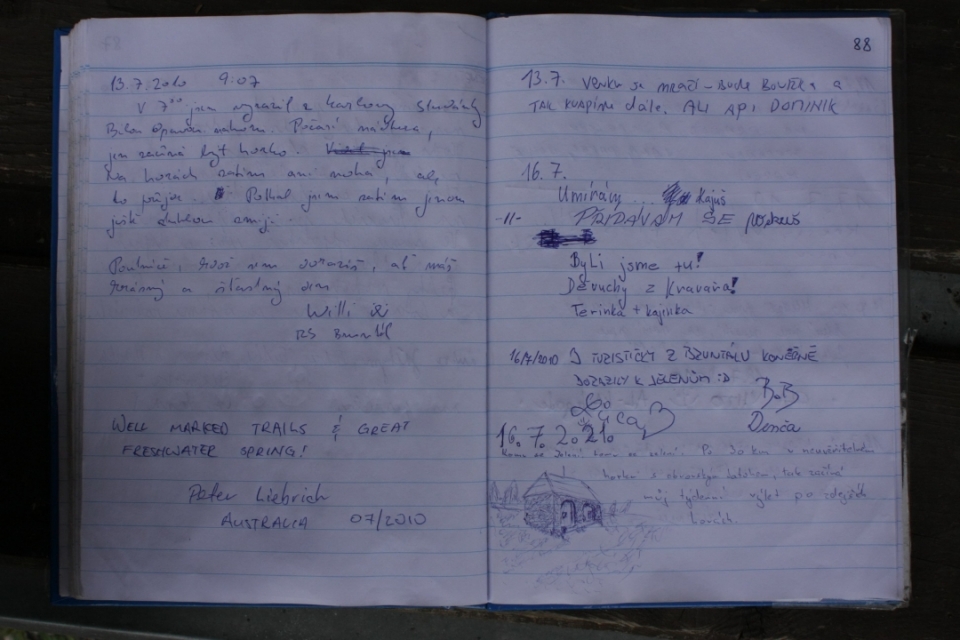 13.7.2010 9:07
V 7⁰⁰ jsem vyrazil z Karlovy Studánky
Bílou Opavou nahoru. Počasí nádhera,
jen začíná být horko.
Na horách zatím ani noha, ale
to přijde. Potkal jsem zatím jenom
ještě
Poutníče, kdož sem dorazíš, ať máš
krásný a šťastný den
Willi
RS Bruntál
WELL MARKED TRAILS & GREAT
FRESHWATER SPRING!
Peter Liebrich
AUSTRALIA 07/2010
88
13.7. VENKU SE MRAČÍ - BUDE BOUŘKA a
TAK KVAPÍME dÁLE. ALI API DOMINIK
16.7.
Umírám ... Kajuš
-11- PŘIDÁVÁM SE
Byli jsme tu!
Děvuchy z Kravařa!
Terinka + kajinka
16/7/2010 3 TURISTIČKY Z BRUNTÁLU KONEČNĚ
DORAZILY K JELENŮM :D
BáB
Denča
16. 7. 2. 21.
Po 30 km v neuvěřitelném
horku s obrovským batohem, tak začíná
můj týdenní výlet po zdejších
horách.